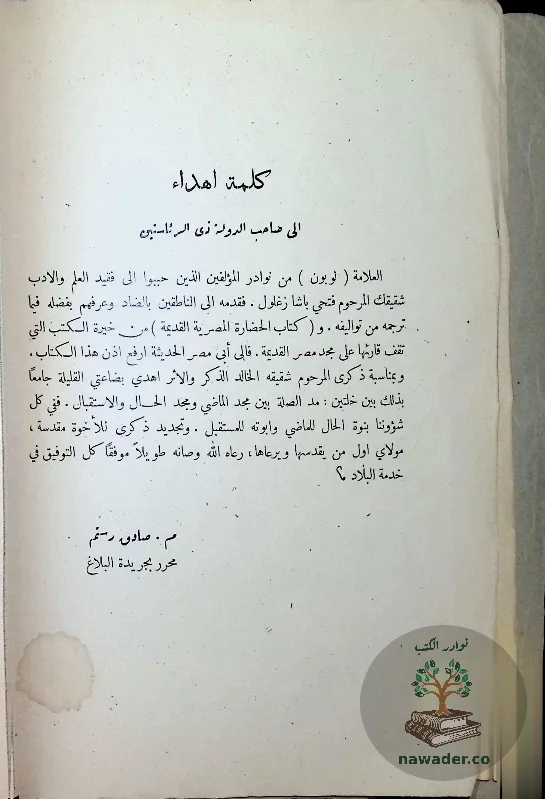 كلمة اهداء
الى صاحب الدولة ذى الرئاستين
العلامة ( لوبون ) من نوادر المؤلفين الذين حببوا الى فقيد العلم والادب
شقيقك المرحوم فتحي باشا زغلول . فقدمه الى الناطقين بالضاد وعرفهم بفضله فيما
ترجمه من تواليفه . و ( كتاب الحضارة المصرية القديمة ) من خيرة الكتب التي
تقف قارئها على مجد مصر القديمة . فالى أبي مصر الحديثة ارفع اذن هذا الكتاب .
وبمناسبة ذكرى المرحوم شقيقه الخالد الذكر والاثر اهدي بضاعتي القليلة جامعاً
بذلك بين خلتين : مد الصلة بين مجد الماضي ومجد الحال والاستقبال . ففي كل
شؤوننا بنوة الحال للماضي وابوته للمستقبل . وتجديد ذكرى للأخوة مقدسة ،
مولاي اول من يقدسها ويرعاها ، رعاه الله وصانه طويلاً موفقاً كل التوفيق في
خدمة البلاد ؟
م . صادق رستم
محرر بجريدة البلاغ
نوادر الكتب
nawader.co